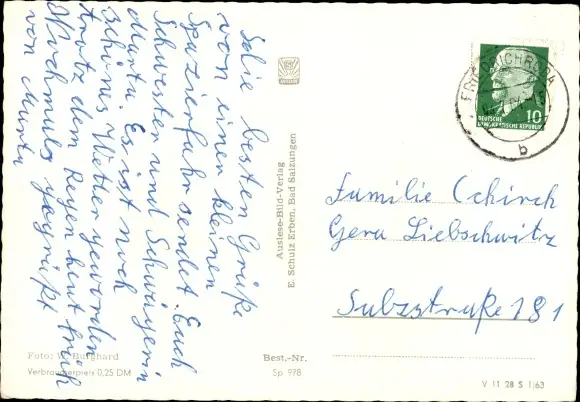 Die besten Grüße
von einer kleinen
Spazierfahr sendet Euch
Schwester und Schwägerin
Marta Es ist noch
schönes Wetter geworden
trotz dem Regen heut früh
Nochmals gegrüßt
von Marta
Foto: W. Burghard
Verbraucherpreis 0,25 DM
Best.-Nr.
Sp 978
Auslese-Bild-Verlag
E. Schulz Erben, Bad Salzungen
FRIEDRICHRODA
b
10
DEUTSCHE
DEMOKRATISCHE REPUBLIK
Familie
Gera Liebschwitz
Salzstraße 181
V 11 28 S 1/63